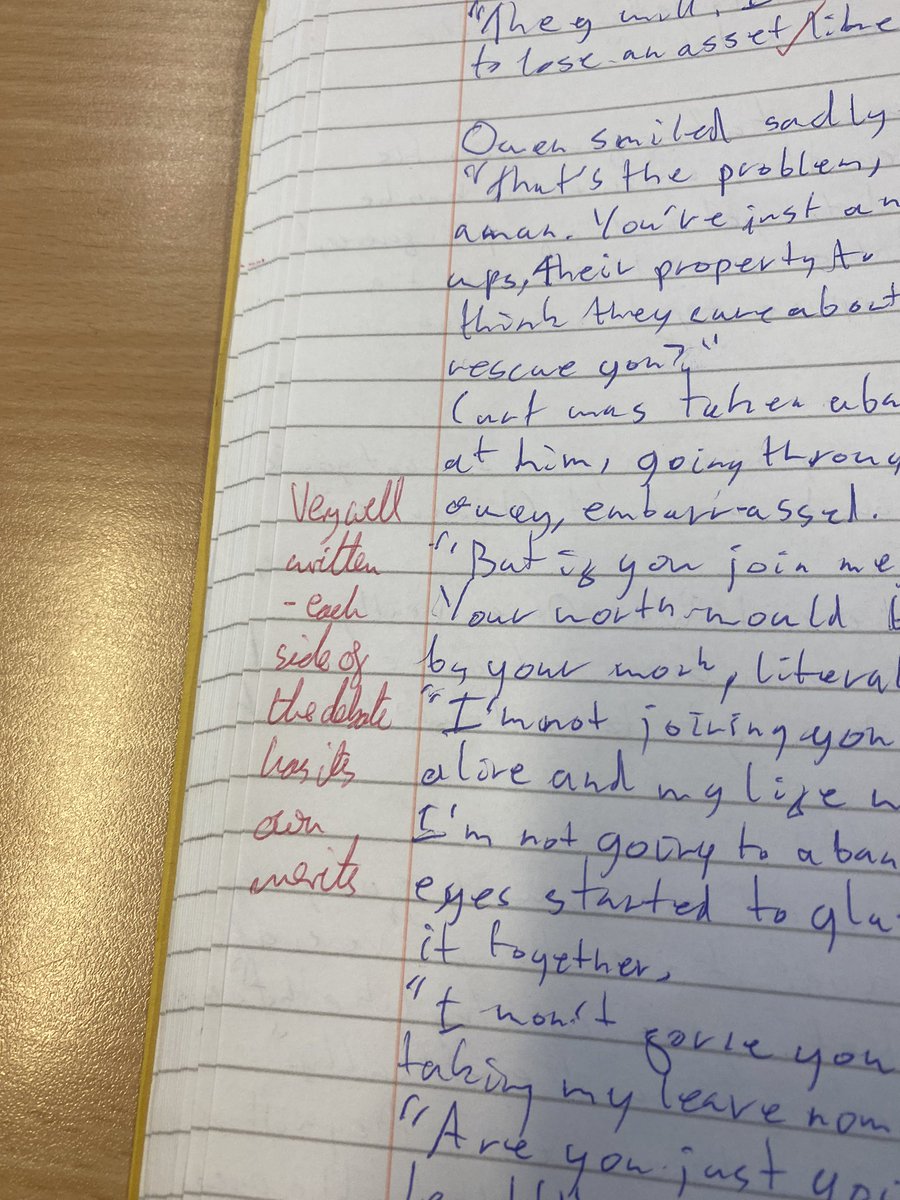 "They will. I
to lose an asset like
Owen smiled sadly
"That's the problem,
a man. You're just an
ups, their property to
think they care about
rescue you?"
Curt was taken aba
at him, going throug
away, embarrassed.
"But if you join me
Your worth would b
by your work, literal
"I'm not joining you
alive and my life w
I'm not going to aban
eyes started to gla
it together,
"I won't force you
taking my leave now
"Are you just
Very well
written
- each
side of
the debate
has its
own
merits